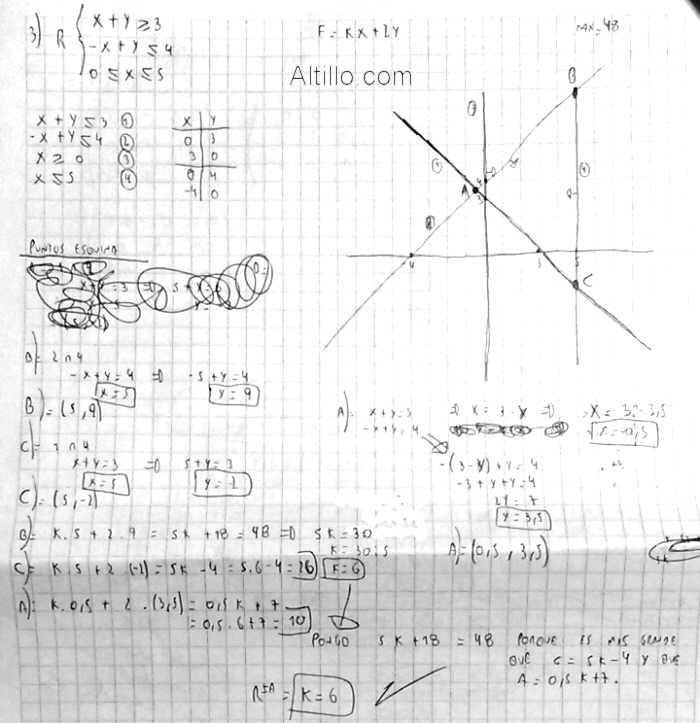 3) R { x + y ≥ 3
-x + y ≤ 4
0 ≤ x ≤ 5
F = Kx + 2y
MAX = 48
Altillo.com
x + y ≤ 3 ①
-x + y ≤ 4 ②
x ≥ 0 ③
x ≤ 5 ④
x | y
0 | 3
3 | 0
0 | 4
-4 | 0
B
A
4
3
4
3
5
C
PUNTOS ESQUINA
x + y = 3 => 5 + y =
B) = 2 ∩ 4
-x + y = 4 => -5 + y = 4
x = 5
y = 9
B) = (5, 9)
C) = 1 ∩ 4
x + y = 3 => 5 + y = 3
x = 5
y = -2
C) = (5, -2)
A) = x + y = 3 => x = 3 - y =>
-x + y = 4
x = 3 - 3,5
x = -0,5
-(3 - y) + y = 4
-3 + y + y = 4
2y = 7
y = 3,5
A) = (0,5 , 3,5)
B) = K.5 + 2.9 = 5K + 18 = 48 => 5K = 30
K = 30:5
C) = K.5 + 2(-2) = 5K - 4 = 5.6 - 4 = 26
K = 6
A) = K.0,5 + 2.(3,5) = 0,5K + 7
= 0,5.6 + 7 = 10
PONGO 5K + 18 = 48 PORQUE ES MAS GRANDE
QUE C = 5K - 4 Y QUE
A = 0,5K + 7.
RTA = K = 6